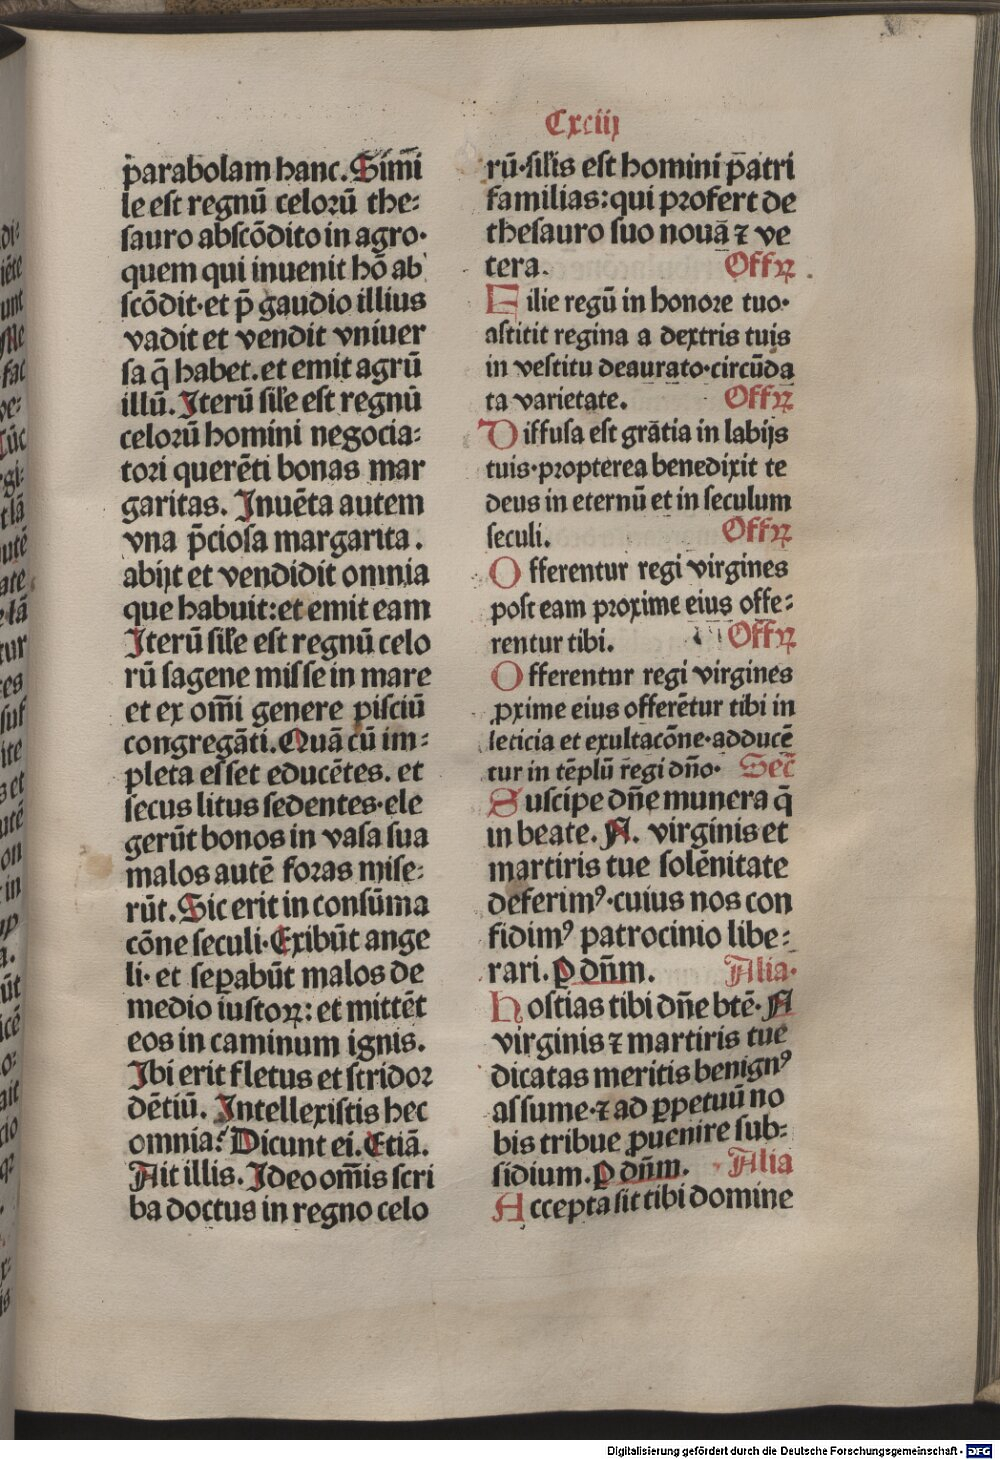 Cxciij
parabolam hanc. Simi̅
le est regnū celoꝛū the⸗
sauro abscōdito in agro·
quem qui inuenit hō ab
scōdit·et p̄ gaudio illius
vadit et vendit vniuer
sa q̄ habet. et emit agrū
illū. Iterū sil̄e est regnū
celoꝛū homini negocia⸗
tori querēti bonas mar
garitas. Inuēta autem
vna p̄ciosa margarita.
abijt et vendidit omnia
que habuit: et emit eam
Iterū sil̄e est regnū celo
rū sagene misse in mare
et ex om̄i genere pisciū
congregāti. Quā cū im⸗
pleta esset educētes. et
secus litus sedentes·ele
gerūt bonos in vasa sua
malos autē foꝛas mise⸗
rūt. Sic erit in consūma
cōne seculi· Exibūt ange
li· et sepabūt malos de
medio iustoꝝ: et mittēt
eos in caminum ignis.
Ibi erit fletus et stridoꝛ
dētiū. Intellexistis hec
omnia? Dicunt ei. Etiā.
Ait illis. Ideo om̄is scri
ba doctus in regno celo
rū·sil̄is est homini p̄atri
familias: qui pꝛofert de
thesauro suo nouā ⁊ ve
tera. Offꝝ
Filie regū in honoꝛe tuo·
astitit regina a dextris tuis
in vestitu deaurato·circūda
ta varietate. Offꝝ
Diffusa est grātia in labijs
tuis·propterea benedixit te
deus in eternū et in seculum
seculi. Offꝝ
Offerentur regi virgines
post eam proxime eius offe⸗
rentur tibi. Offꝝ
Offerentur regi virgines
ꝓxime eius offerētur tibi in
leticia et exultacōne·adducē
tur in tēplū regi dn̄o· Sec̄
Suscipe dn̄e munera q̄
in beate. A. virginis et
martiris tue solēnitate
deferimꝰ·cuius nos con
fidimꝰ patrocinio libe⸗
rari. P dn̄m. Alia·
Hostias tibi dn̄e btē· A
virginis ⁊ martiris tue
dicatas meritis benignꝰ
assume·⁊ ad ꝑpetuū no
bis tribue ꝓuenire sub⸗
sidium. P dn̄m. Alia
Accepta sit tibi domine
Digitalisierung gefördert durch die Deutsche Forschungsgemeinschaft - DFG